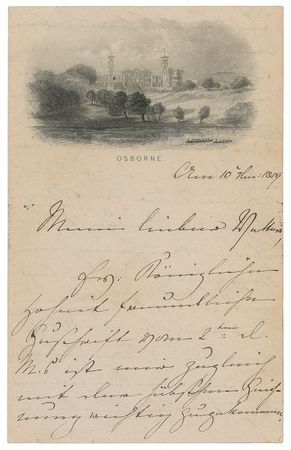 OSBORNE
Den 10
Mein lieber Vetter,
Ew: Königlichen
Hoheit freundliche
Zuschrift vom 2ten d.
M.s ist mir zugleich
mit der hübschen Zeich-
nung richtig zugekommen.